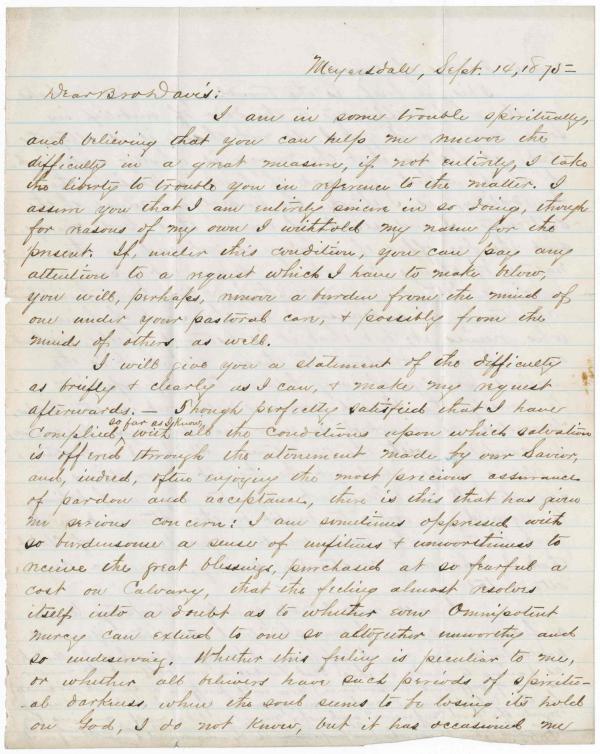 Meyersdale, Sept. 14, 1875—
Dear Bro Davis:
I am in some trouble spiritually,
and believing that you can help me remove the
difficulty in a great measure, if not entirely, I take
the liberty to trouble you in reference to the matter. I
assure you that I am entirely sincere in so doing, though
for reasons of my own I withhold my name for the
present. If, under this condition, you can pay any
attention to a request which I have to make below,
you will, perhaps, remove a burden from the mind of
one under your pastoral care, & possibly from the
minds of others as well.
I will give you a statement of the difficulty
as briefly & clearly as I can, & make my request
afterwards. — Though perfectly satisfied that I have
so far as I know
complied with all the conditions upon which salvation
is offered through the atonement made by our Savior,
and, indeed, often enjoying the most precious assurance
of pardon and acceptance, there is this that has given
me serious concern: I am sometimes oppressed with
so burdensome a sense of unfitness & unworthiness to
receive the great blessings, purchased at so fearful a
cost on Calvary, that the feeling almost resolves
itself into a doubt as to whether even Omnipotent
mercy can extend to one so altogether unworthy and
so undeserving. Whether this feeling is peculiar to me,
or whether all believers have such periods of spiritu-
al darkness when the soul seems to be losing its hold
on God, I do not know, but it has occasioned me